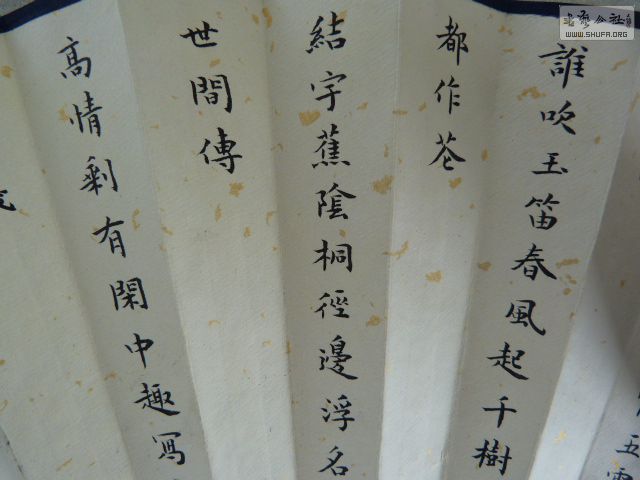 書藝公社
WWW.SHUFA.ORG
五
誰吹玉笛春風起千樹
都作花
結宇蕉陰桐徑邊浮名
世間傳
高情剩有閑中趣寫